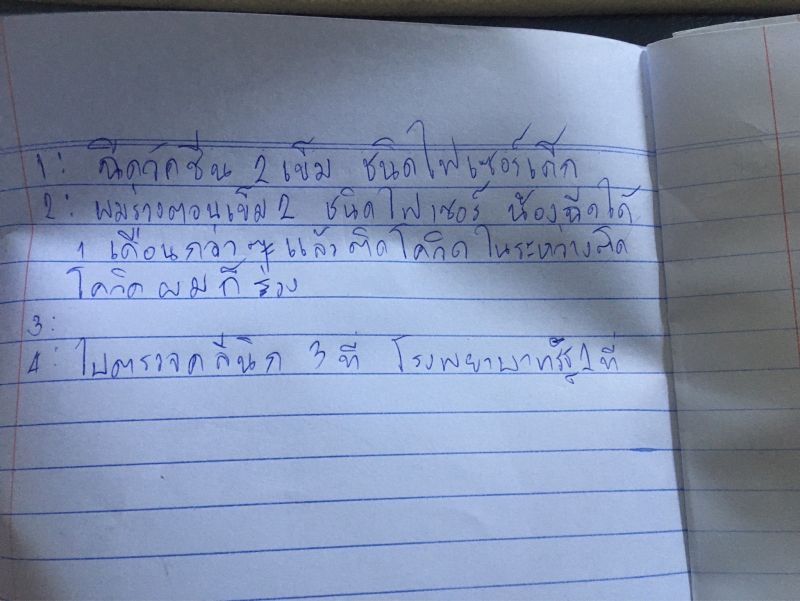 1: ฉีดวัคซีน 2 เข็ม ชนิดไฟเซอร์เด็ก
2: ผมร่วงตอนเข็ม 2 ชนิดไฟเซอร์ น้องฉีดได้
1 เดือนกว่าๆ แล้วติดโควิด ในระหว่างติด
โควิด ผมก็ร่วง
3:
4: ไปตรวจคลีนิก 3 ที่ โรงพยาบาทรัฐ 1 ที่